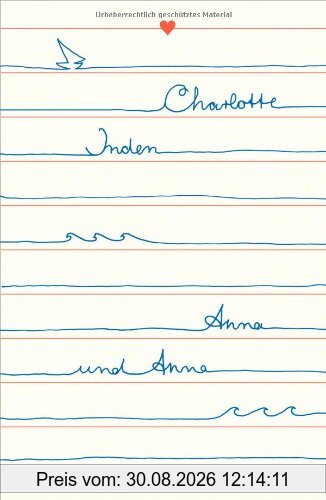 Urheberrechtlich geschütztes Material
Charlotte
Inden
Anna
und Anna
Preis vom: 30.08.2026 12:14:11